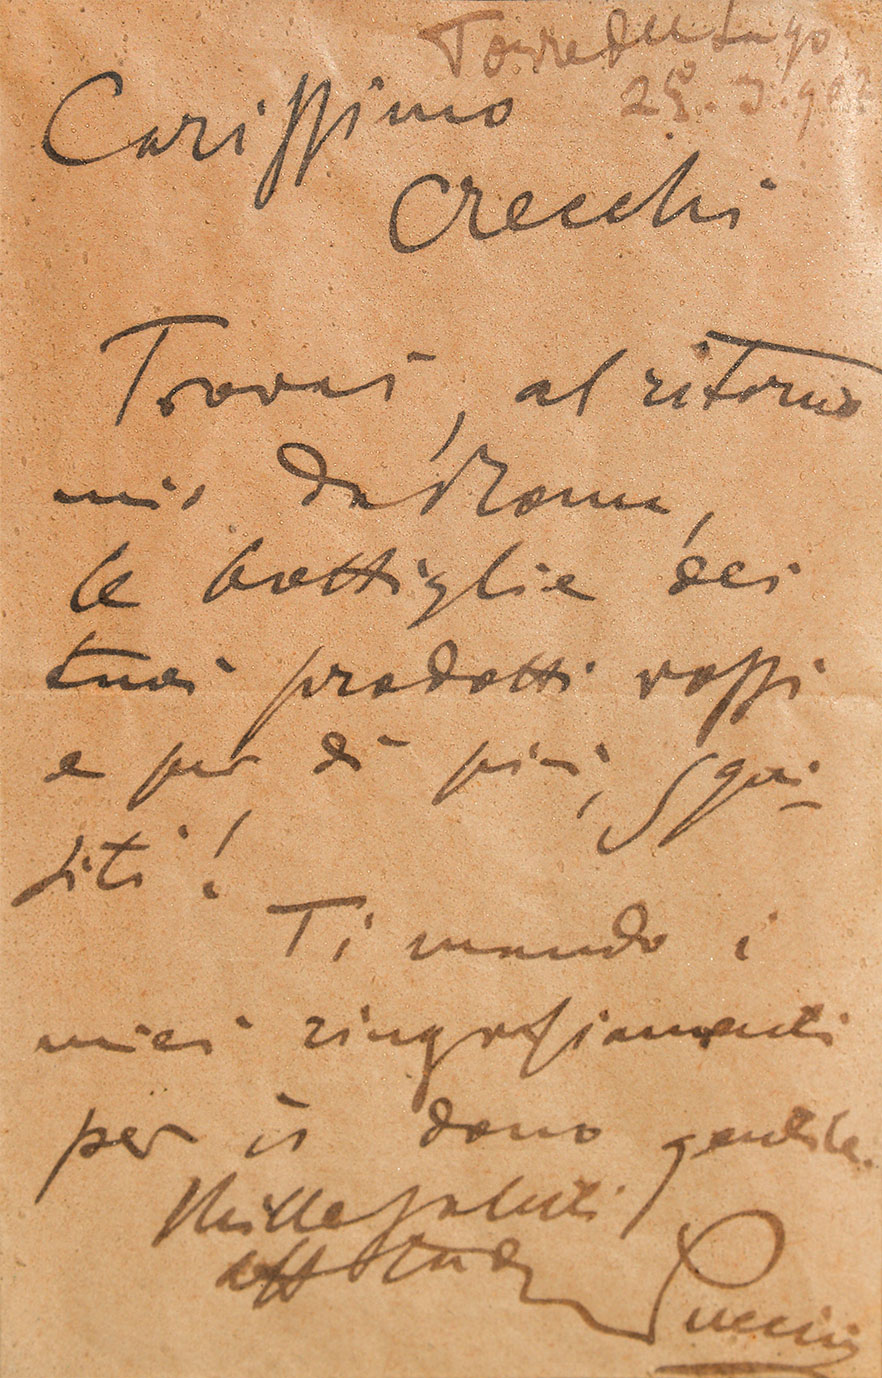 Torre del Lago
25.3.902
Carissimo
Crecchi
Trovai, al ritorno
mio da Roma,
le bottiglie dei
tuoi prodotti rossi
e per di più, squi-
siti!
Ti mando i
miei ringraziamenti
per il dono gentile.
Mille saluti
aff
Puccini